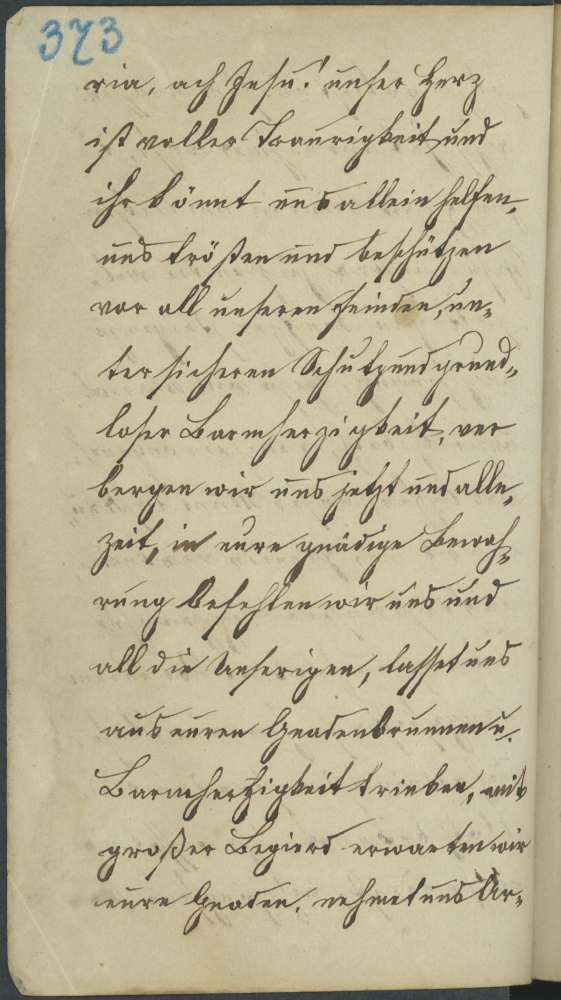 373
ria, ach Jesu! unser Herz
ist voller Traurigkeit und
ihr könnt uns allein helfen,
uns trösten und beschützen
vor all unseren Feinden, un„
ter sicheren Schutz und grund„
loser Barmherzigkeit, ver
bergen wir uns jetzt und alle„
zeit, in eure gnädige Bewah„
rung befehlen wir uns und
all die Unserigen, lasset uns
aus euren Gnadenbrunnen u.
Barmherzigkeit trinken, mit
großer Begierd erwarten wir
eure Gnaden, nehmet uns Ar„